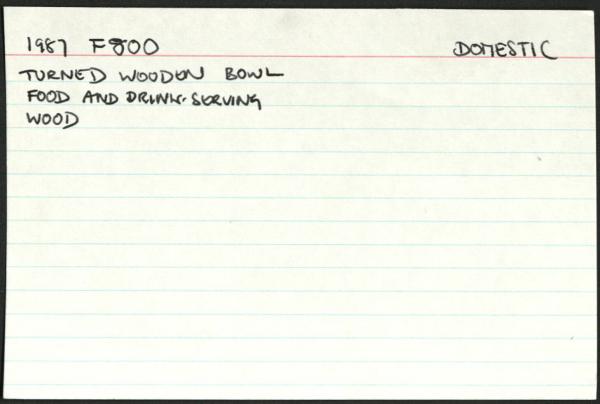 1987 F800 DOMESTIC
TURNED WOODEN BOWL
FOOD AND DRINK-SERVING
WOOD